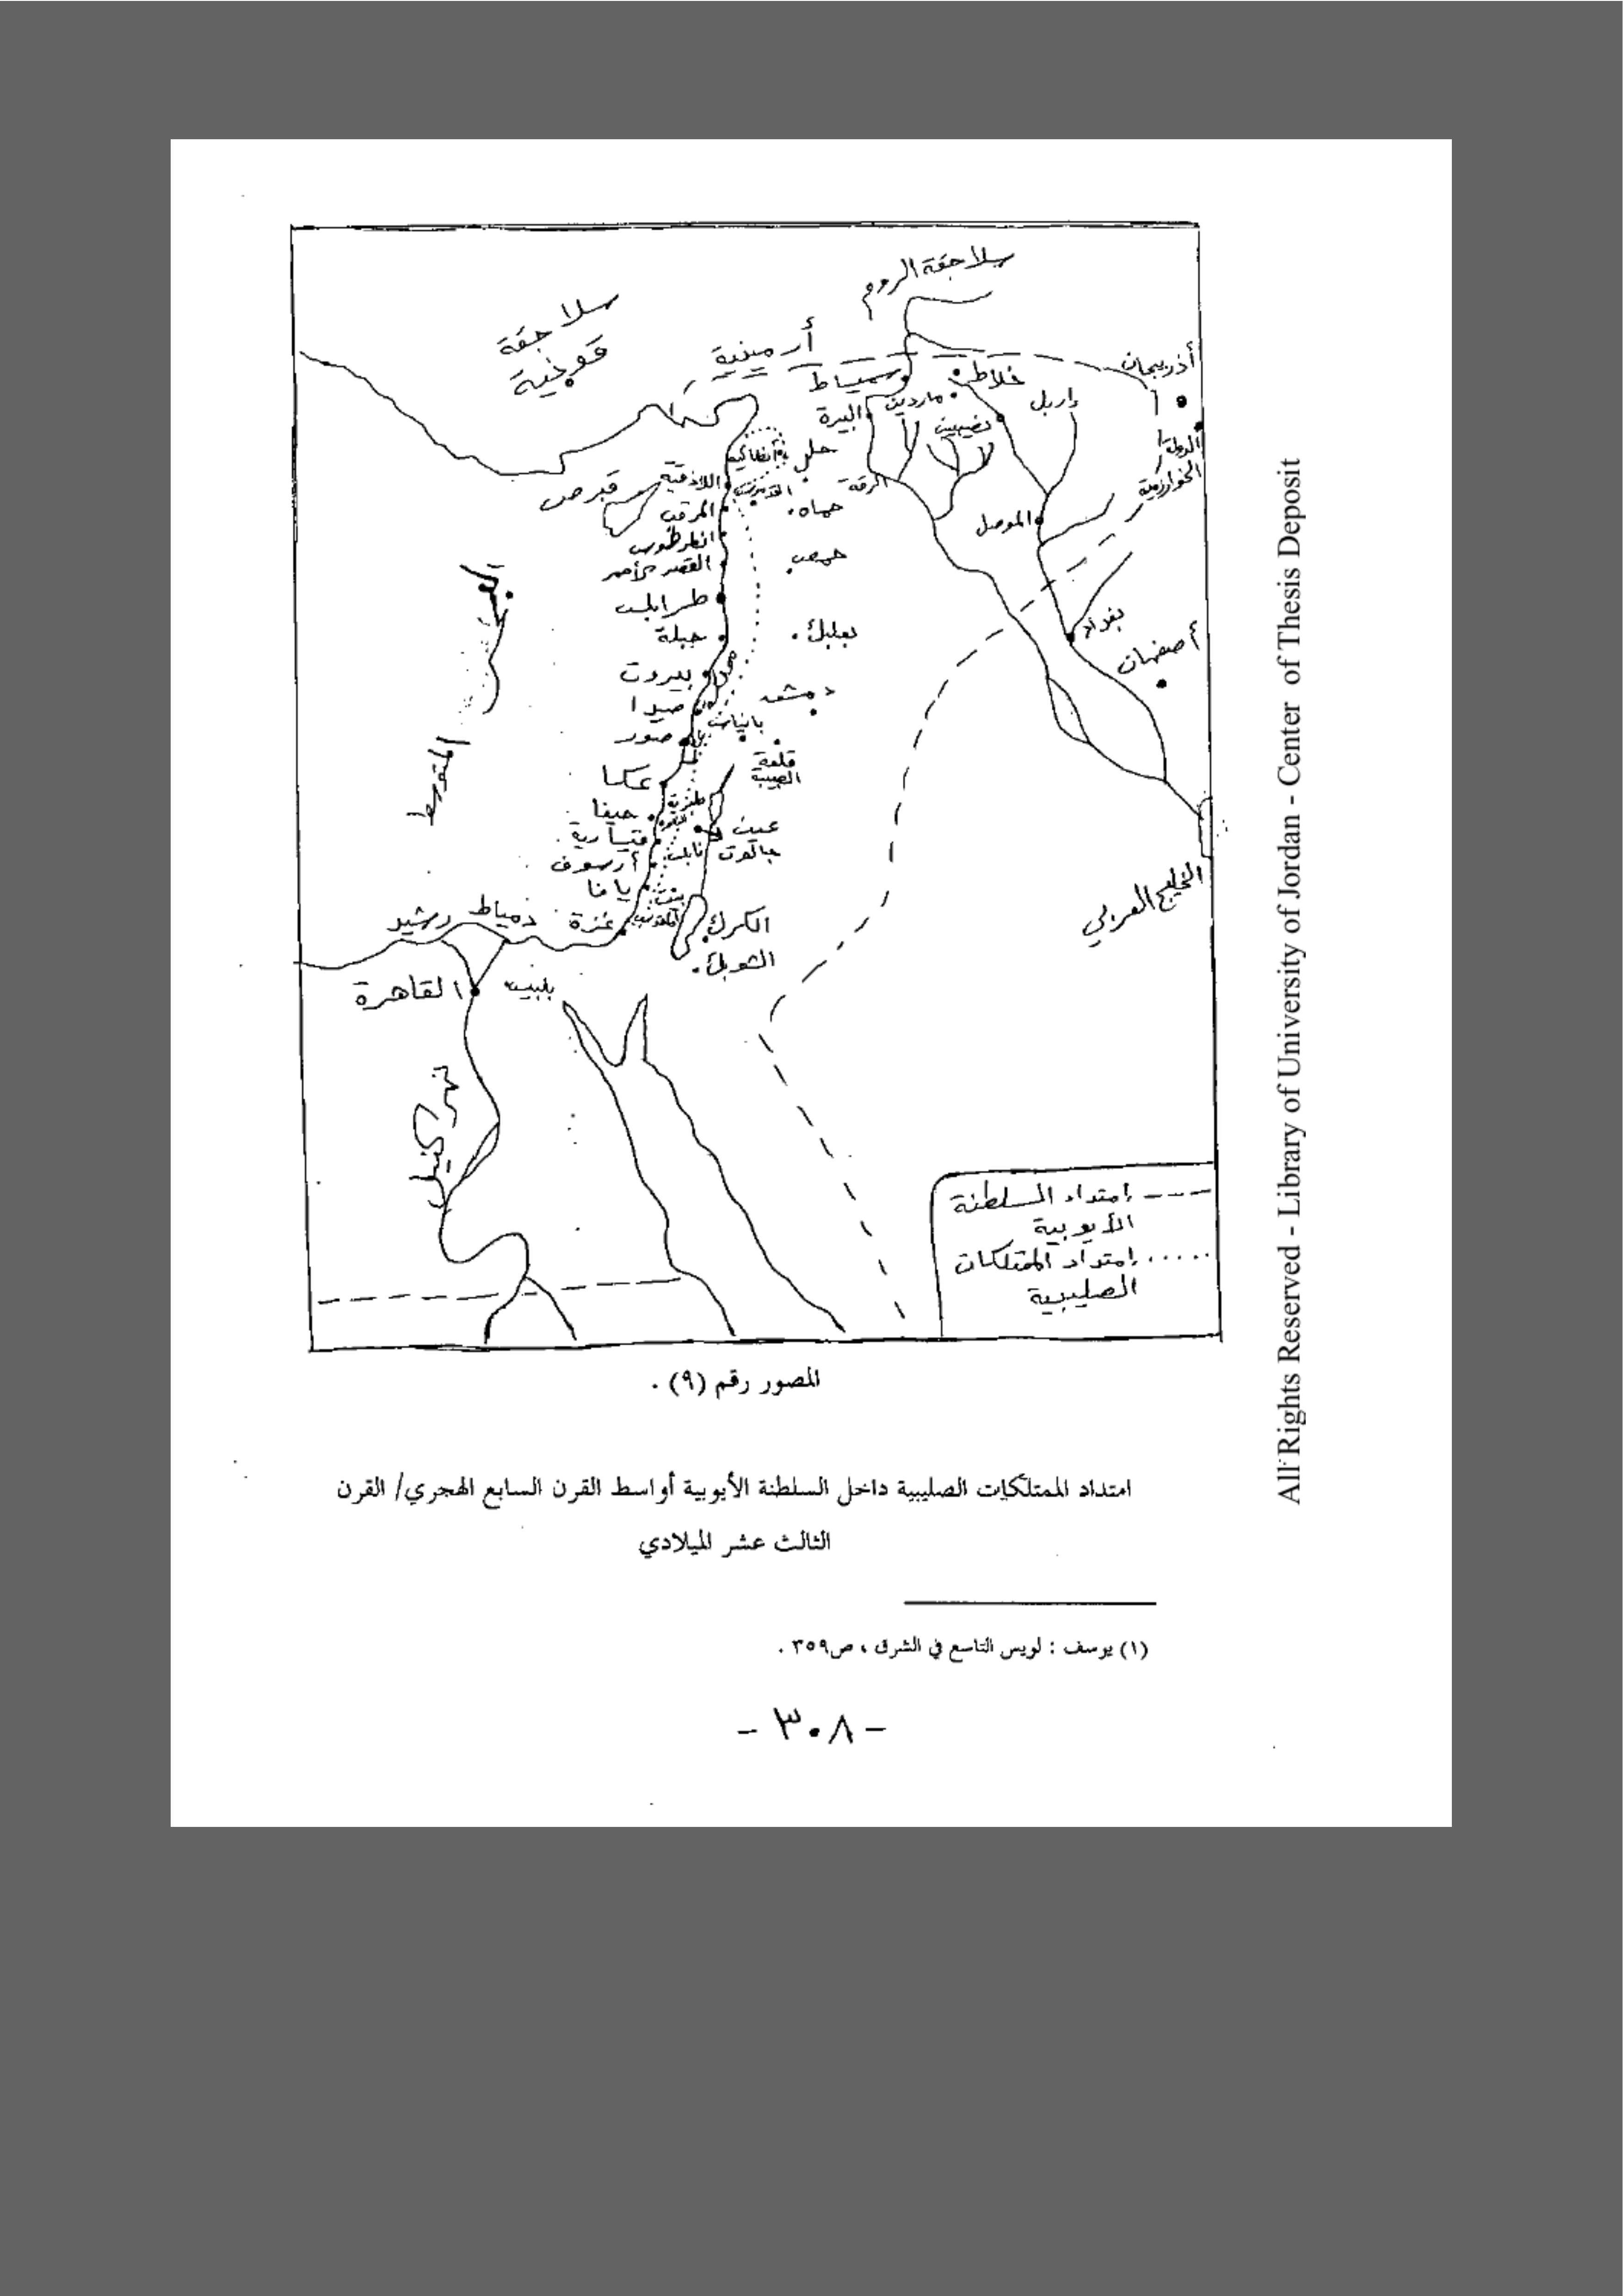 سلاجقة الروم
سلاجقة
قونية
أرمينية
أذربيجان
سميساط
خلاط
ماردين
إربل
البيرة
نصيبين
الدولة
الخوارزمية
حلب
أنطاكية
اللاذقية
قبرص
الرقة
حماه
المرقب
الموصل
انطرطوس
حمص
القصر الأحمر
البحر
طرابلس
جبلة
بعلبك
بغداد
أصفهان
بيروت
دمشق
صيدا
بانياس
صور
المتوسط
قلعة
الصبيبة
عكا
طبرية
حيفا
عين
جالوت
قيسارية
نابلس
أرسوف
يافا
بيت
المقدس
الخليج العربي
رشيد
دمياط
غزة
الكرك
الشوبك
القاهرة
بلبيس
نهر النيل
--- إمتداد السلطنة
الأيوبية
..... إمتداد الممتلكات
الصليبية
المصور رقم (٩) .
امتداد الممتلكات الصليبية داخل السلطنة الأيوبية أواسط القرن السابع الهجري/ القرن
الثالث عشر الميلادي
(١) يوسف : لويس التاسع في الشرق ، ص٣٥٩ .
- ٣٠٨ -
All Rights Reserved - Library of University of Jordan - Center of Thesis Deposit